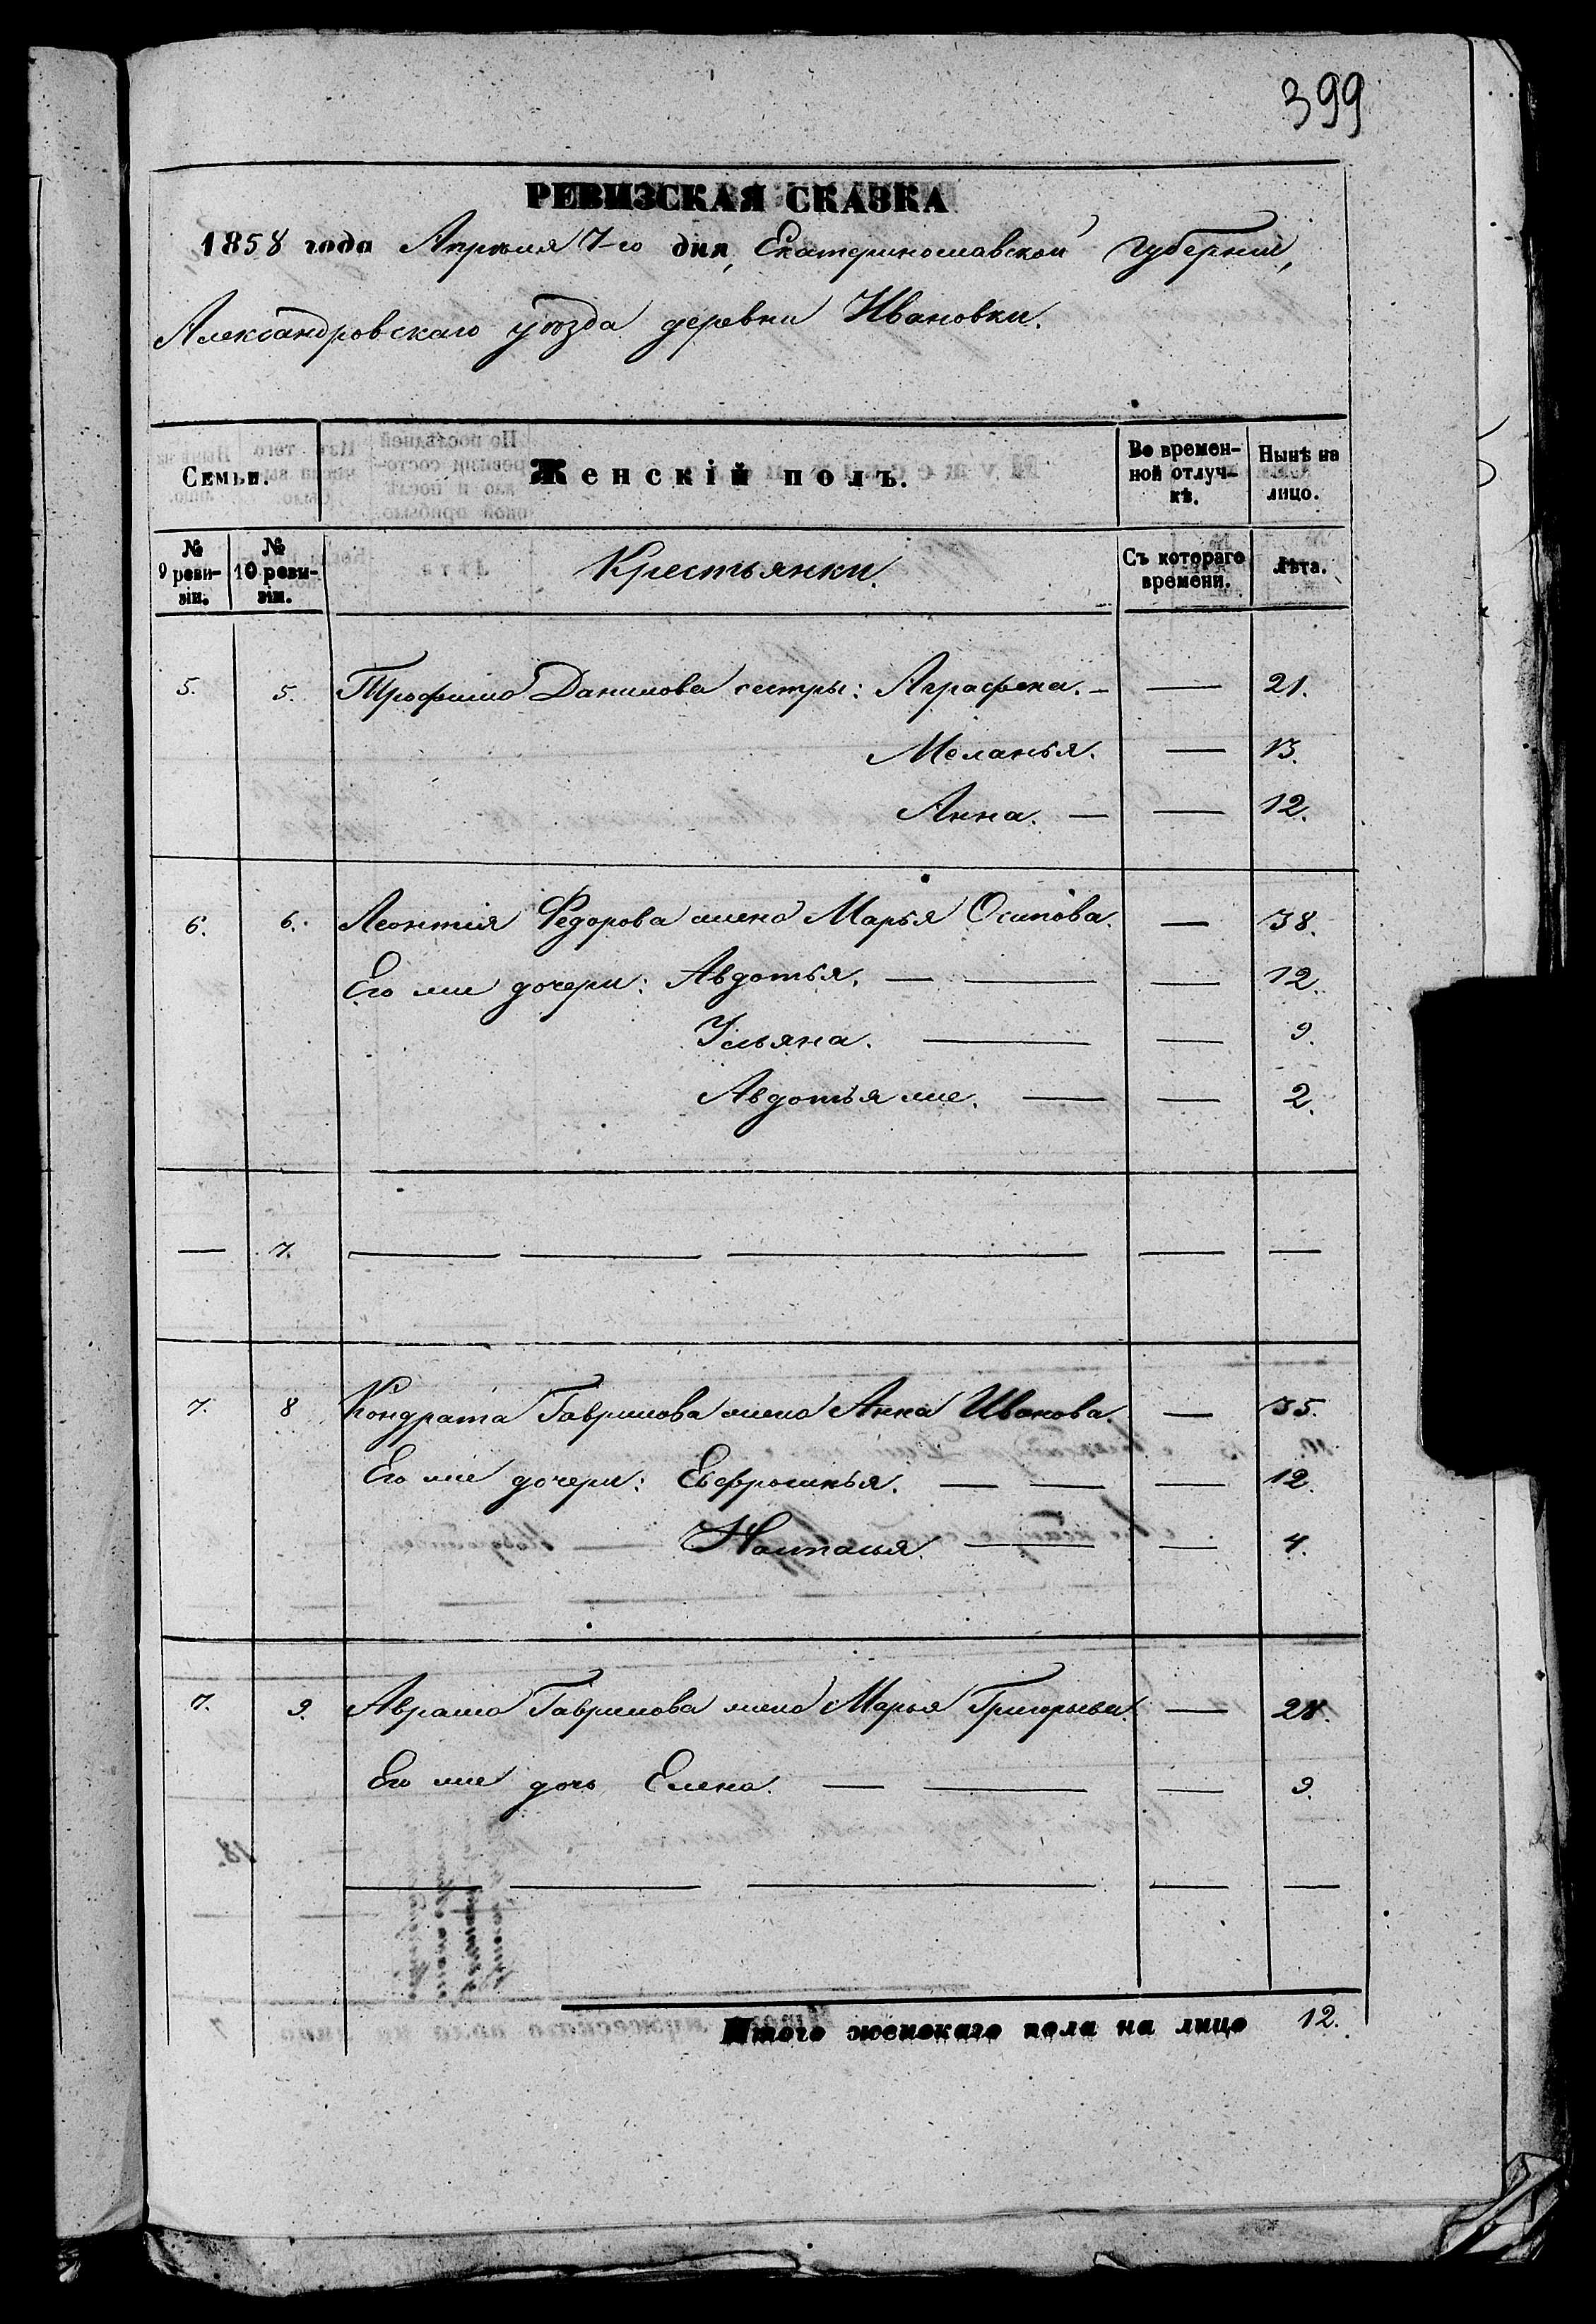 399
РЕВИЗСКАЯ СКАЗКА
1858 года Апрѣля 7-го дня, Екатеринославской губерніи,
Александровскаго уѣзда деревни Ивановки.
Семьи. Женскій полъ. Во времен-ной отлуч-кѣ. Нынѣ на лицо.
№ 9 реви-зіи. № 10 реви-зіи. Крестьянки. Съ котораго времени. Лѣта.
5. 5. Трофима Данилова сестры: Аграфена. — — 21.
Меланья. — 13.
Анна. — — 12.
6. 6. Леонтія Федорова жена Марья Осипова. — 38.
Его же дочери: Авдотья. — — — 12.
Ульяна. — — 9.
Авдотья же. — — 2.
— 7. — — — — —
7. 8 Кондрата Гаврилова жена Анна Иванова. — 35.
Его же дочери: Евфросинья. — — — 12.
Наталья. — — 4.
7. 9. Абрама Гаврилова жена Марья Григорьева. — 28.
Его же дочь Елена. — — — 9.
— — — — —
Итого женскаго пола на лицо 12.